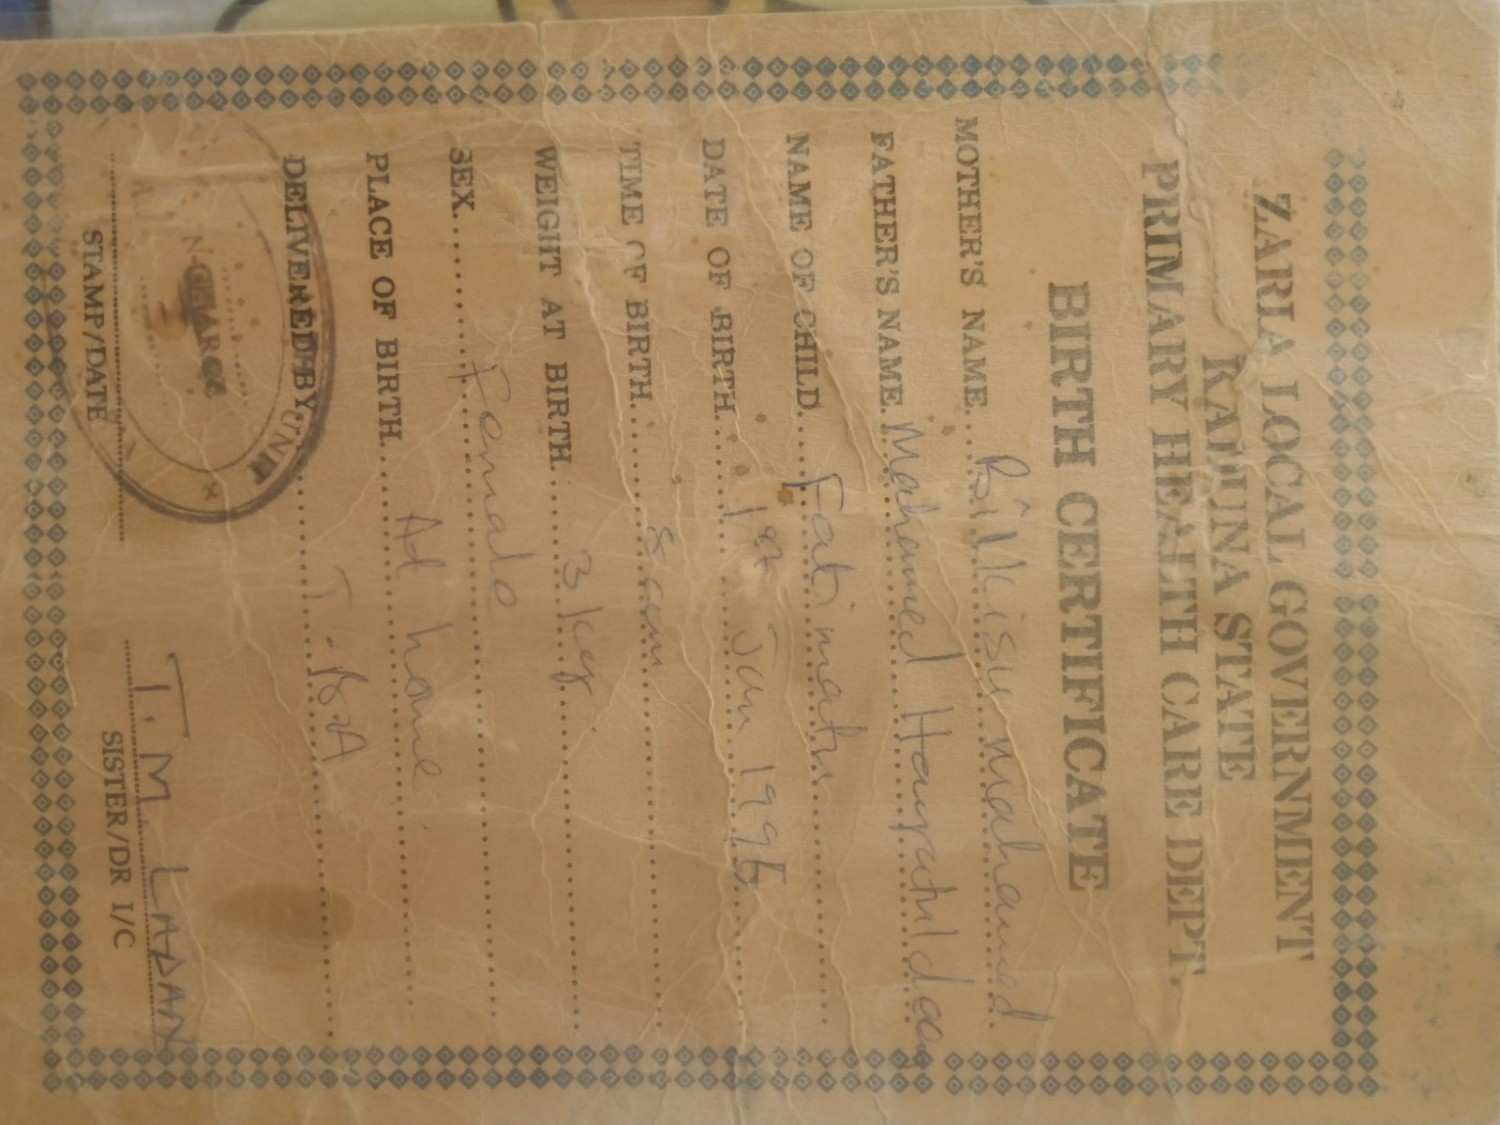 ZARIA LOCAL GOVERNMENT
KADUNA STATE
PRIMARY HEALTH CARE DEPT.
BIRTH CERTIFICATE
MOTHER'S NAME. Bilkisu Mohamed
FATHER'S NAME. Mohamed
NAME OF CHILD. Fatimatu
DATE OF BIRTH. 1st Jan 1995
TIME OF BIRTH. 8 am
WEIGHT AT BIRTH. 3 kg
SEX. Female
PLACE OF BIRTH. At home
DELIVERED BY. T.
UNIT
STAMP/DATE
T. M. LADAN
SISTER/DR I/C